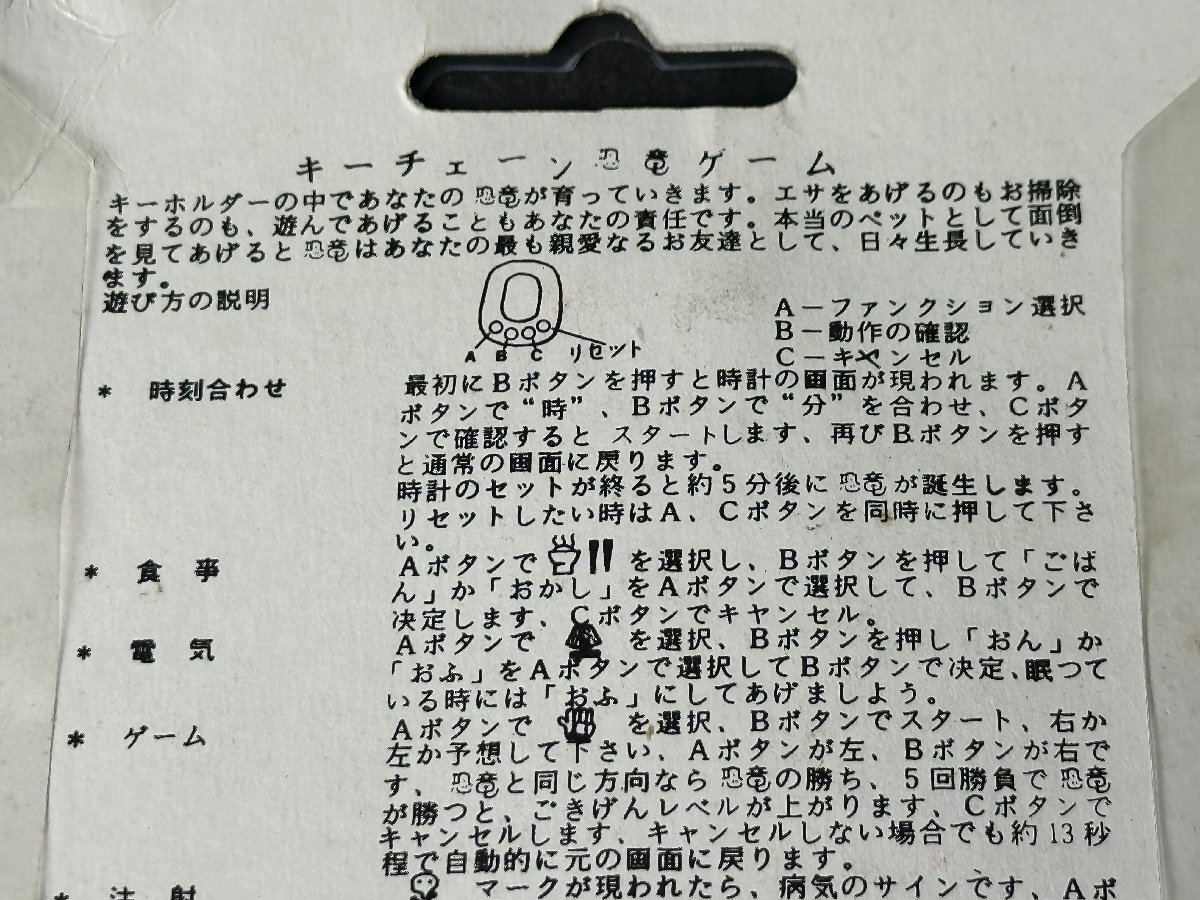 キーチェーン恐竜ゲーム
キーホルダーの中であなたの恐竜が育っていきます。エサをあげるのもお掃除
をするのも、遊んであげることもあなたの責任です。本当のペットとして面倒
を見てあげると恐竜はあなたの最も親愛なるお友達として、日々生長していき
ます。
遊び方の説明
A B C リセット
A－ファンクション選択
B－動作の確認
C－キャンセル
* 時刻合わせ
最初にBボタンを押すと時計の画面が現われます。A
ボタンで“時”、Bボタンで“分”を合わせ、Cボタ
ンで確認すると スタートします、再びBボタンを押す
と通常の画面に戻ります。
時計のセットが終ると約5分後に恐竜が誕生します。
リセットしたい時はA、Cボタンを同時に押して下さ
い。
* 食事
Aボタンで を選択し、Bボタンを押して「ごは
ん」か「おかし」をAボタンで選択して、Bボタンで
決定します、Cボタンでキヤンセル。
* 電気
Aボタンで を選択、Bボタンを押し「おん」か
「おふ」をAボタンで選択してBボタンで決定、眠つて
いる時には「おふ」にしてあげましよう。
* ゲーム
Aボタンで を選択、Bボタンでスタート、右か
左か予想して下さい、Aボタンが左、Bボタンが右で
す、恐竜と同じ方向なら恐竜の勝ち、5回勝負で恐竜
が勝つと、ごきげんレベルが上がります、Cボタンで
キャンセルします、キャンセルしない場合でも約13秒
程で自動的に元の画面に戻ります。
* 注射
マークが現われたら、病気のサインです、Aボ